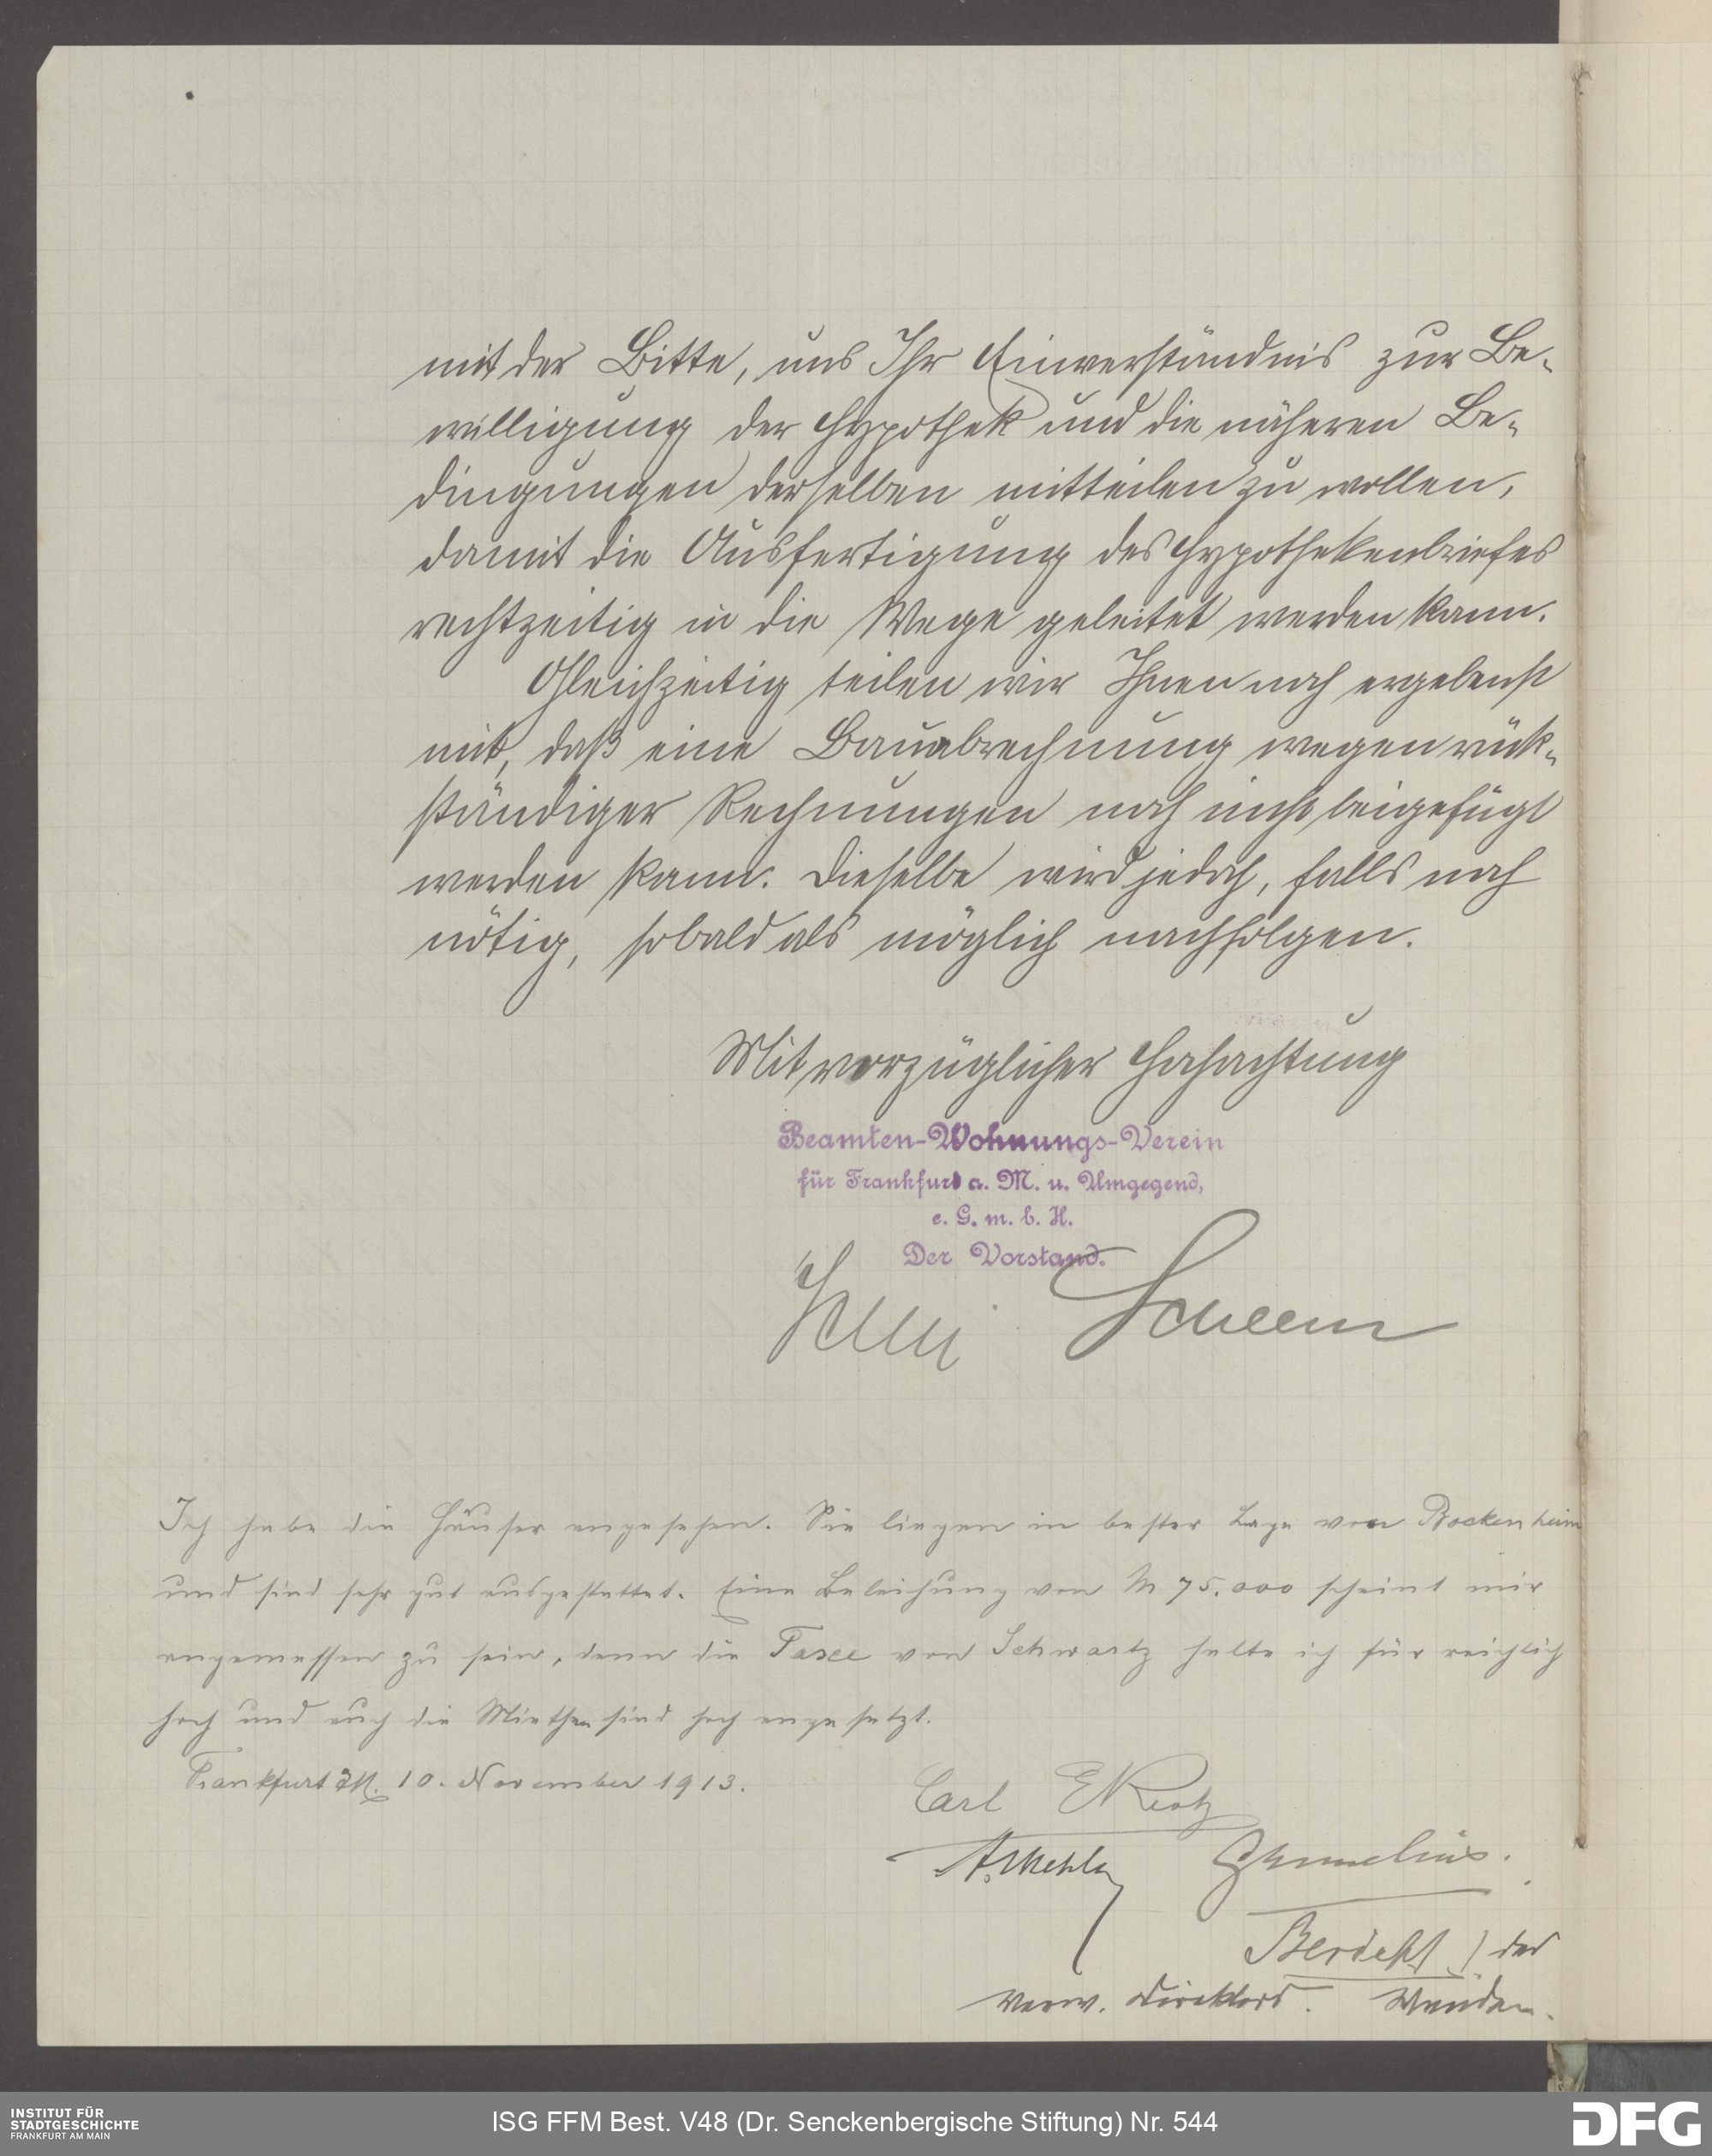 mit der Bitte, uns Ihr Einverständnis zur Be-
willigung der Hypothek und die näheren Be-
dingungen derselben mitteilen zu wollen,
damit die Ausfertigung des Hypothekenbriefes
rechtzeitig in die Wege geleitet werden kann.
Gleichzeitig teilen wir Ihnen noch ergebenst
mit, daß eine Bauabrechnung wegen rück-
ständiger Rechnungen noch nicht beigefügt
werden kann. Dieselbe wird jedoch, falls noch
nötig, sobald als möglich nachfolgen.
Mit vorzüglicher Hochachtung
Beamten-Wohnungs-Verein
für Frankfurt a. M. u. Umgegend,
e. G. m. b. H.
Der Vorstand.
Ich habe die Häuser angesehen. Sie liegen in bester Lage von Bockenheim
und sind sehr gut ausgestattet. Eine Beleihung von M 75.000 scheint mir
angemessen zu sein, denn die Taxe von Schwartz halte ich für reichlich
hoch und auch die Miethen sind hoch angesetzt.
Frankfurt a/M. 10. November 1913.
Carl
Bericht des
Verw. Direktors. Wenden.
INSTITUT FÜR
STADTGESCHICHTE
FRANKFURT AM MAIN
ISG FFM Best. V48 (Dr. Senckenbergische Stiftung) Nr. 544
DFG